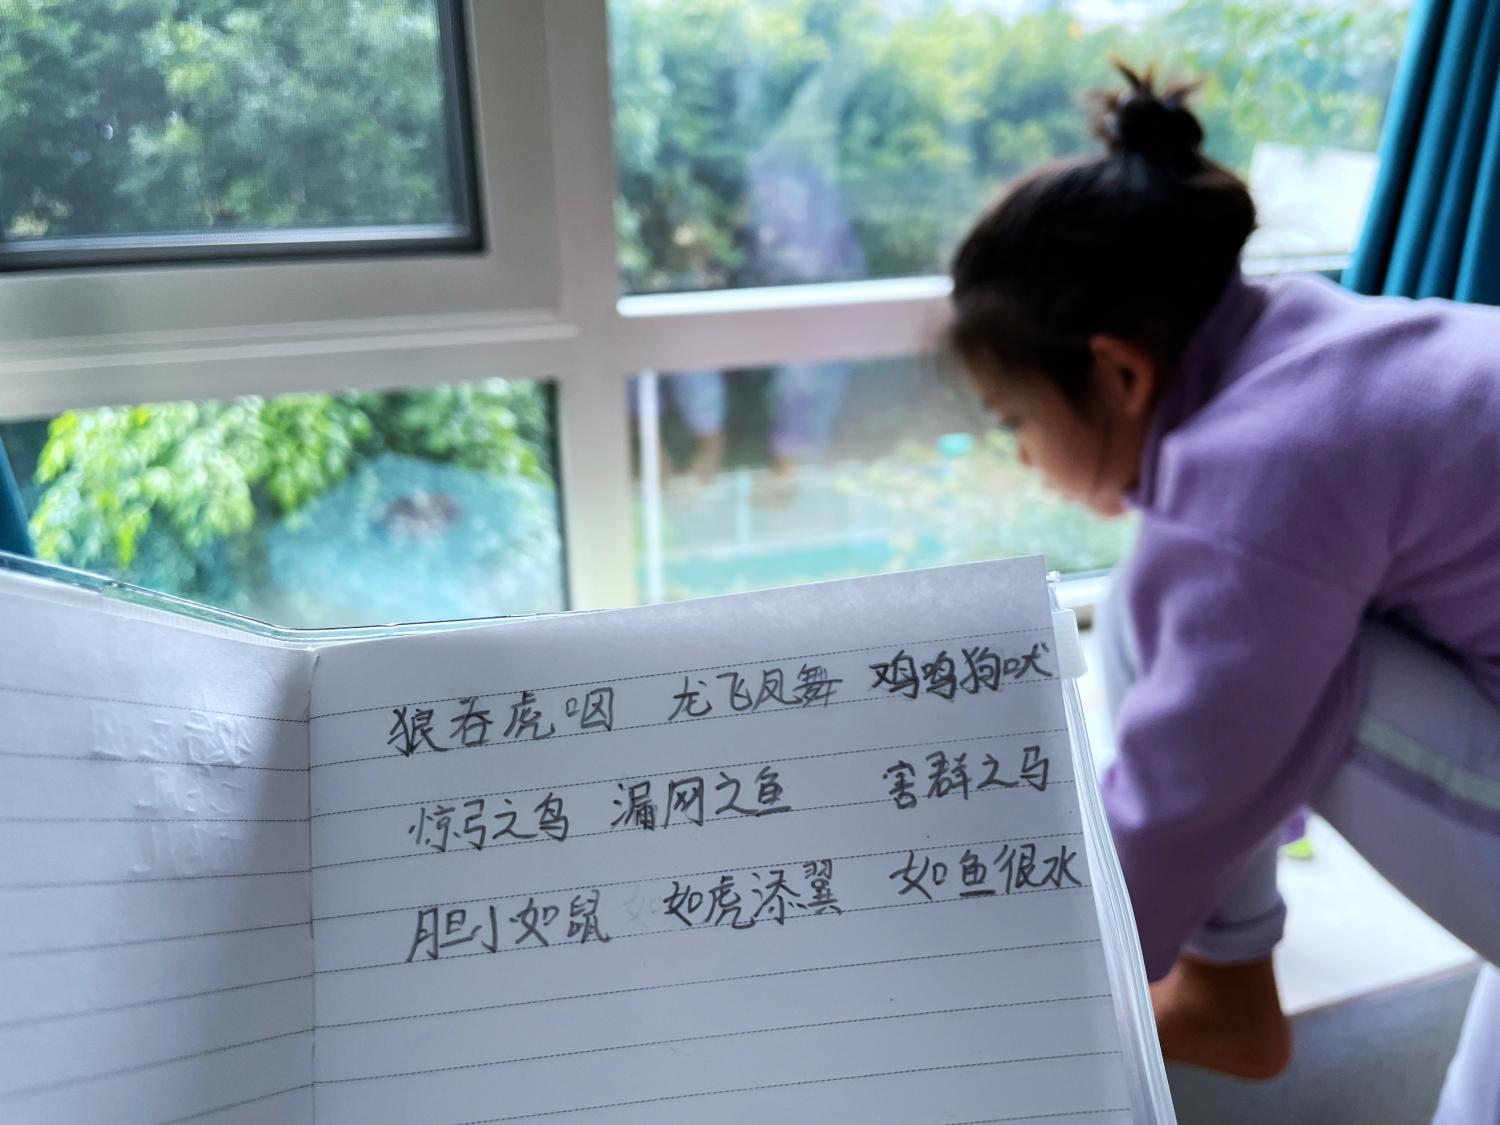 狼吞虎咽 龙飞凤舞 鸡鸣狗吠
惊弓之鸟 漏网之鱼 害群之马
胆小如鼠 如虎添翼 如鱼很水